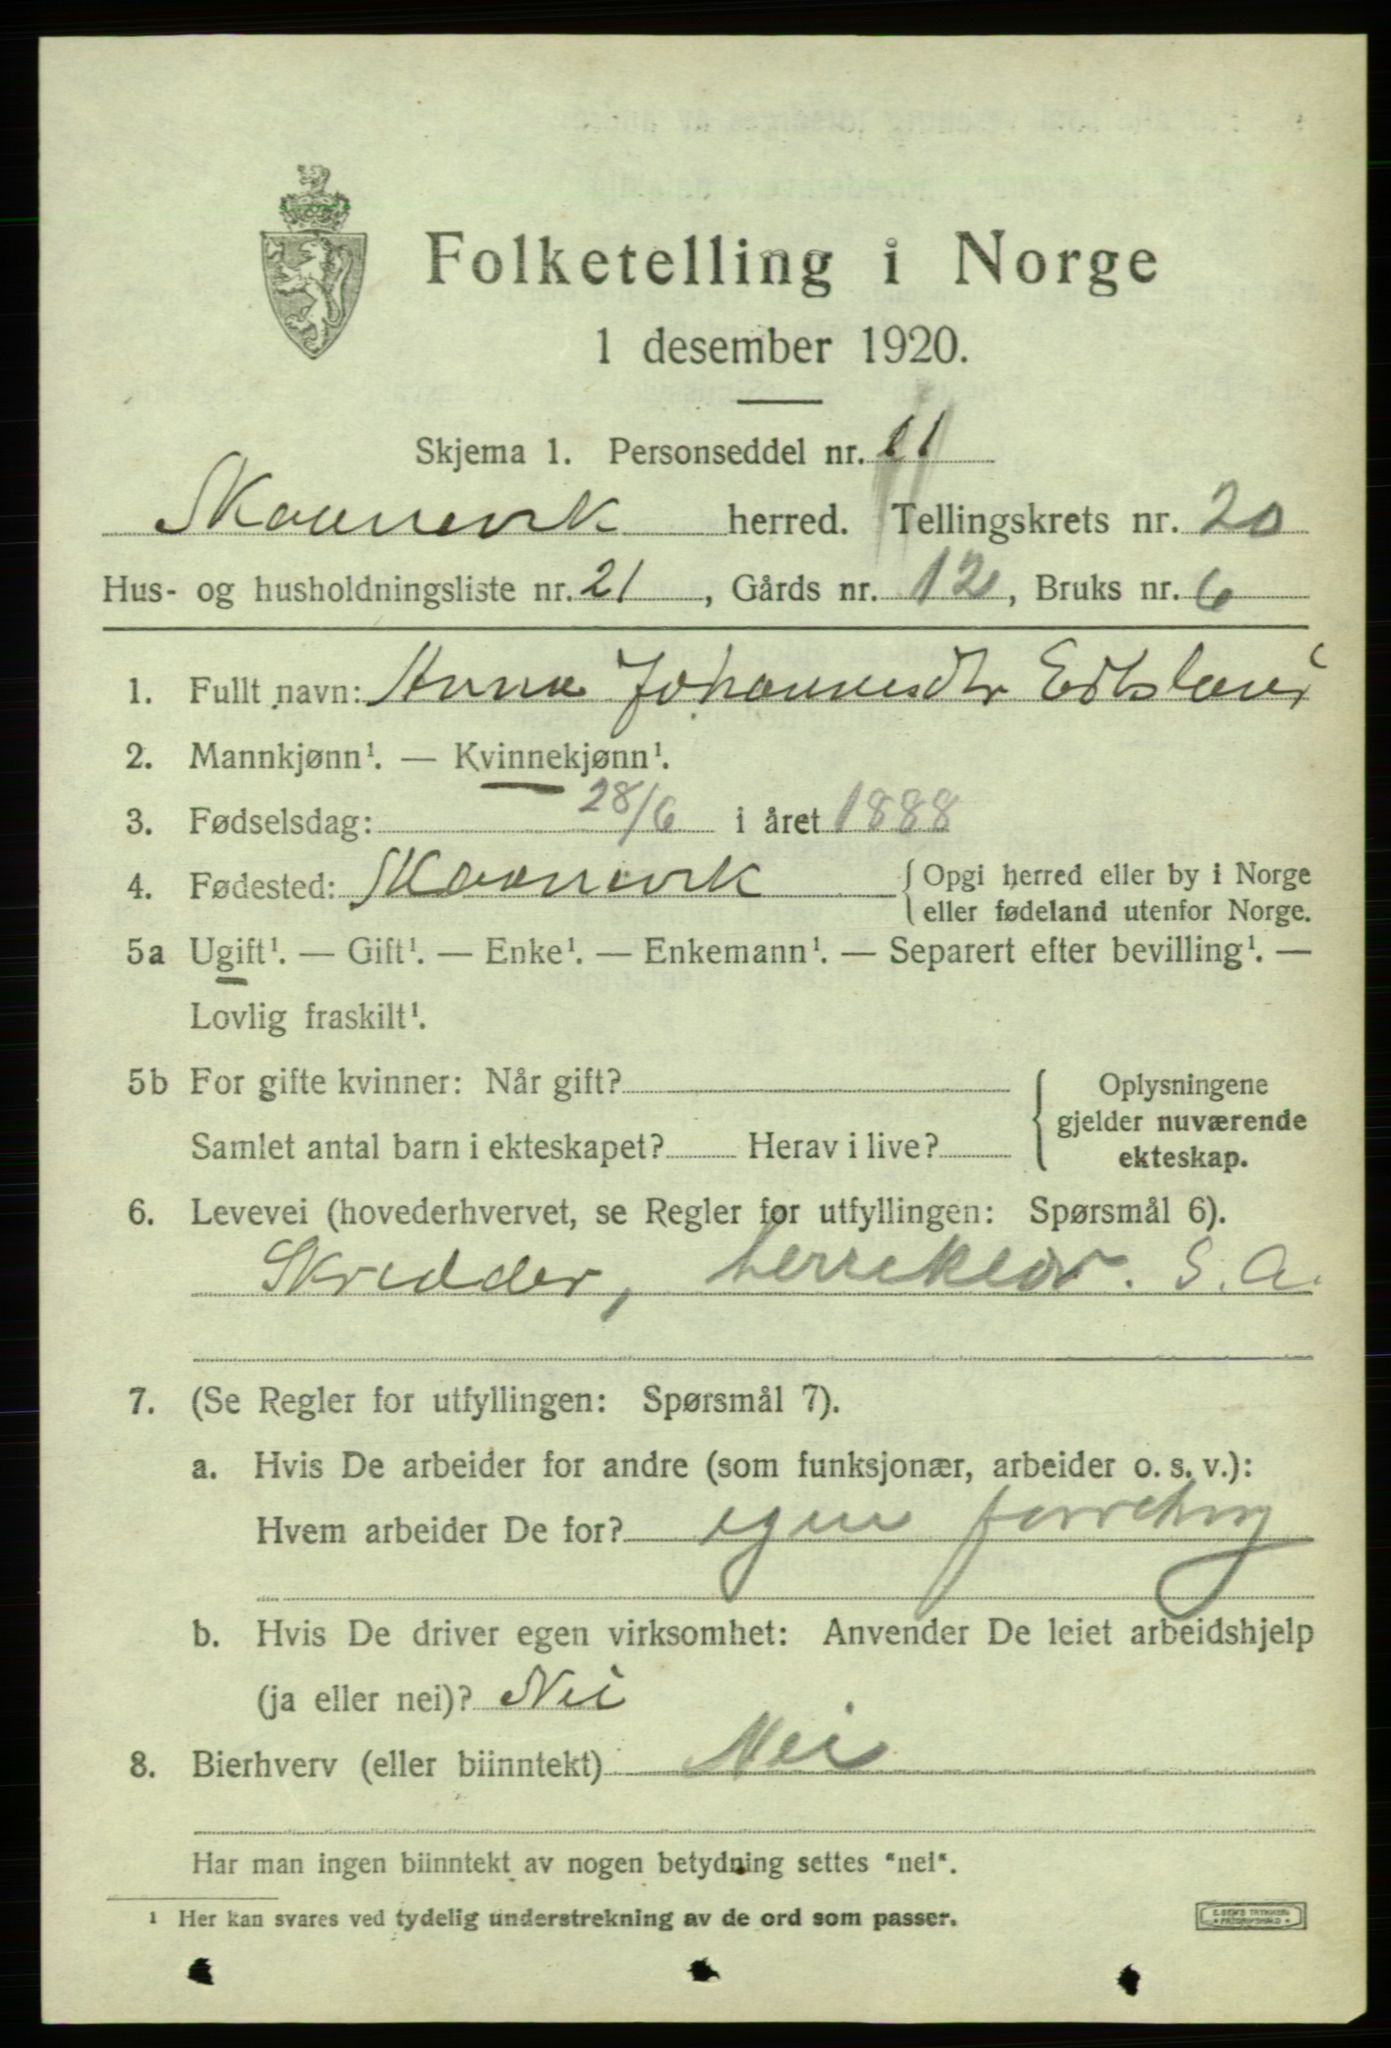 Folketelling i Norge
1 desember 1920.
Skjema 1. Personseddel nr. 11
Skaanevik herred. Tellingskrets nr. 20
Hus- og husholdningsliste nr. 21, Gårds nr. 12, Bruks nr. 6
1. Fullt navn: Anna Johannesdtr
2. Mannkjønn¹. — Kvinnekjønn¹.
3. Fødselsdag: 28/6 i året 1888
4. Fødested: Skaanevik { Opgi herred eller by i Norge
eller fødeland utenfor Norge.
5a Ugift¹. — Gift¹. — Enke¹. — Enkemann¹. — Separert efter bevilling¹. —
Lovlig fraskilt¹.
5b For gifte kvinner: Når gift? { Oplysningene
gjelder nuværende
ekteskap.
Samlet antal barn i ekteskapet? Herav i live?
6. Levevei (hovederhvervet, se Regler for utfyllingen: Spørsmål 6).
Skredder, herreklær. S. A.
7. (Se Regler for utfyllingen: Spørsmål 7).
a. Hvis De arbeider for andre (som funksjonær, arbeider o. s. v.):
Hvem arbeider De for? egen forretning
b. Hvis De driver egen virksomhet: Anvender De leiet arbeidshjelp
(ja eller nei)? Nei
8. Bierhverv (eller biinntekt) Nei
Har man ingen biinntekt av nogen betydning settes "nei".
¹ Her kan svares ved tydelig understrekning av de ord som passer.